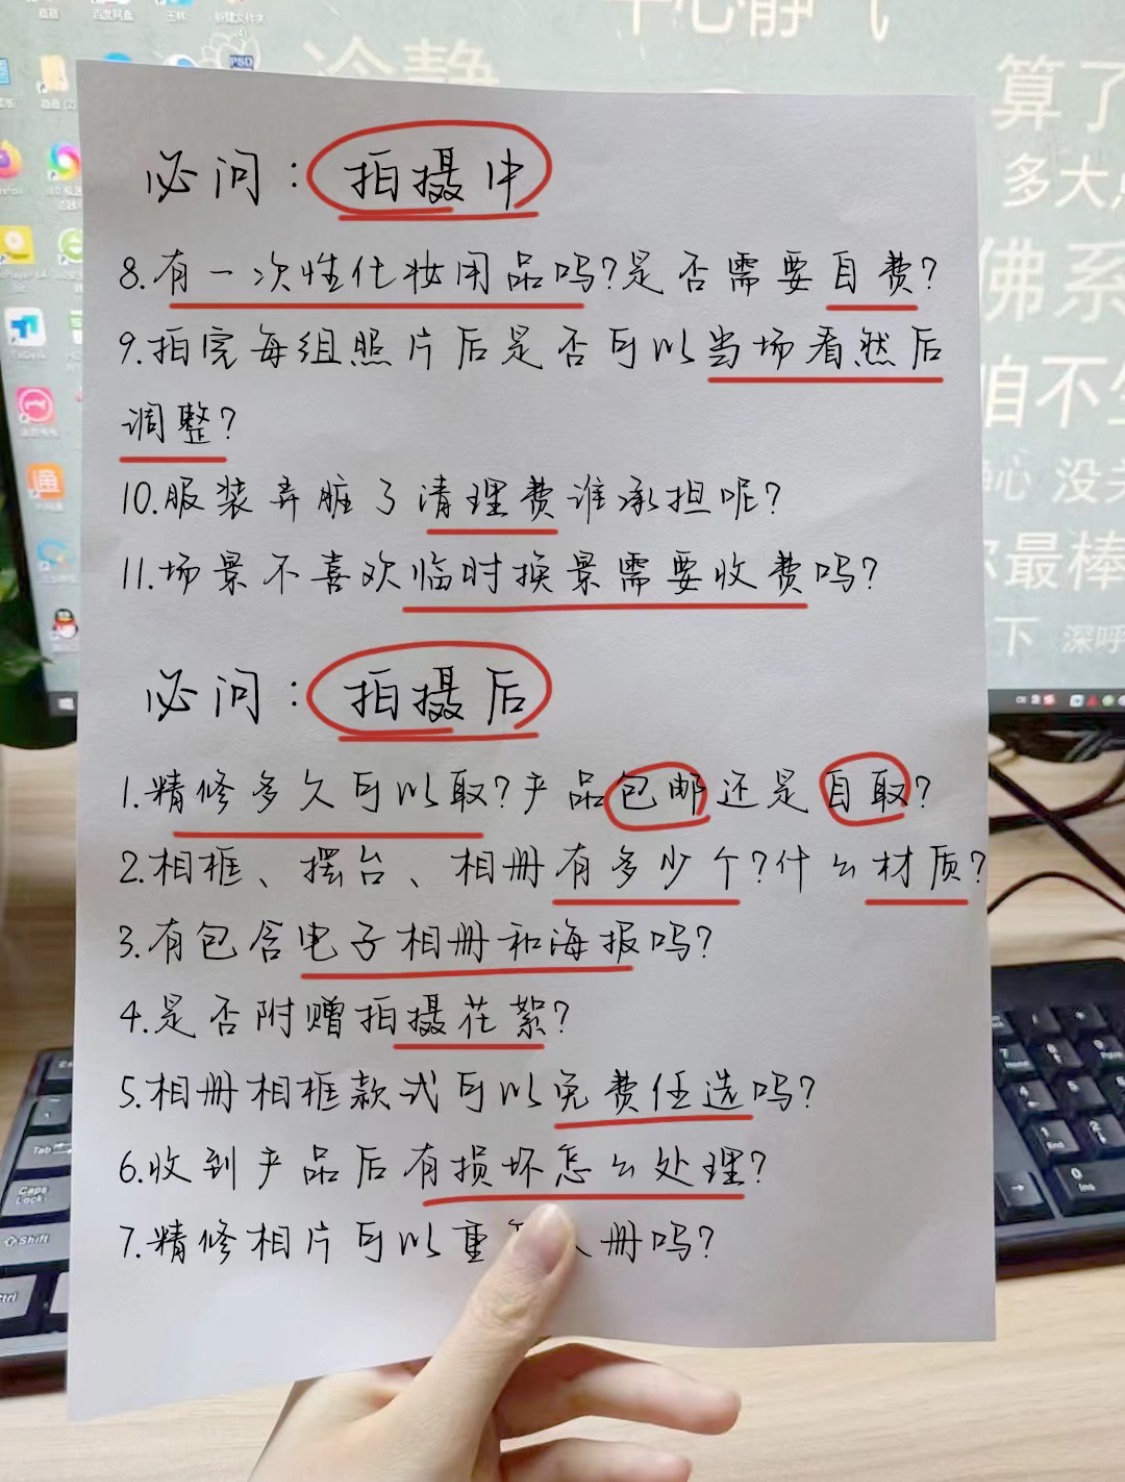 必问：拍摄中
8.有一次性化妆用品吗?是否需要自费?
9.拍完每组照片后是否可以当场看然后
调整?
10.服装弄脏了清理费谁承担呢?
11.场景不喜欢临时换景需要收费吗?
必问：拍摄后
1.精修多久可以取?产品包邮还是自取?
2.相框、摆台、相册有多少个?什么材质?
3.有包含电子相册和海报吗?
4.是否附赠拍摄花絮?
5.相册相框款式可以免费任选吗?
6.收到产品后有损坏怎么处理?
7.精修相片可以重 册吗?
冷静
平心静气
算了
多大
佛系
咱不
没关
最棒
下 深呼
PSD
百度网盘
新建文件夹
通
Tab
Caps
Lock
Shift
Ctrl
7
1
End
0
Ins